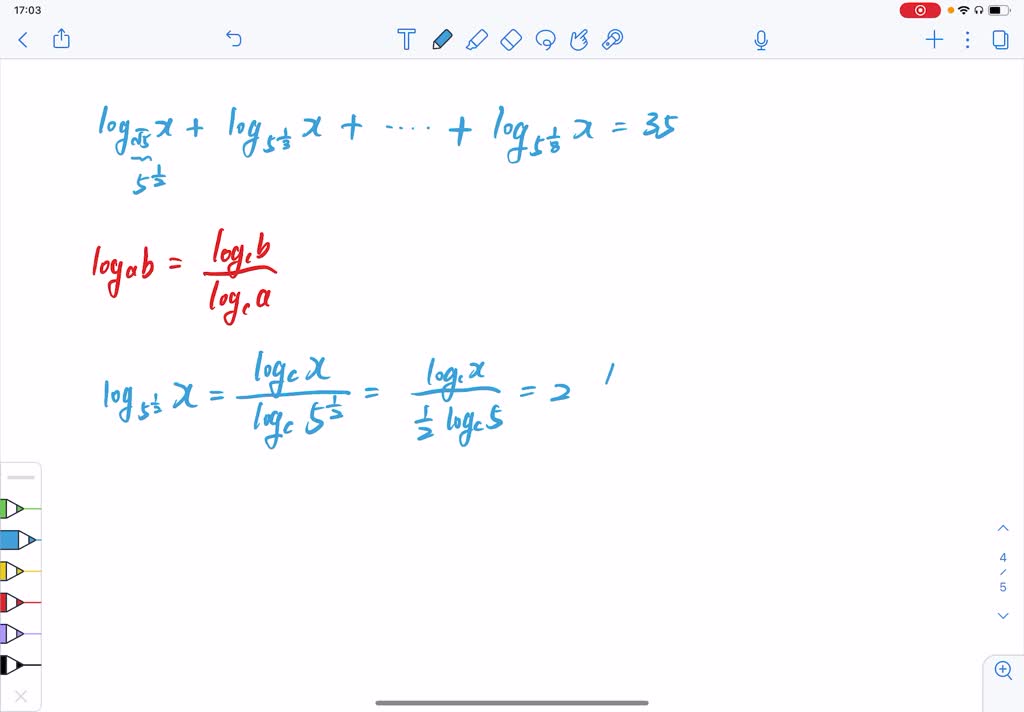 17:03
log_{√5} x + log_{5^{1/3}} x + ···· + log_{5^{1/8}} x = 35
5^{1/2}
log_a b = \frac{log_c b}{log_c a}
log_{5^{1/2}} x = \frac{log_c x}{log_c 5^{1/2}} = \frac{log_c x}{\frac{1}{2} log_c 5} = 2
4
/
5